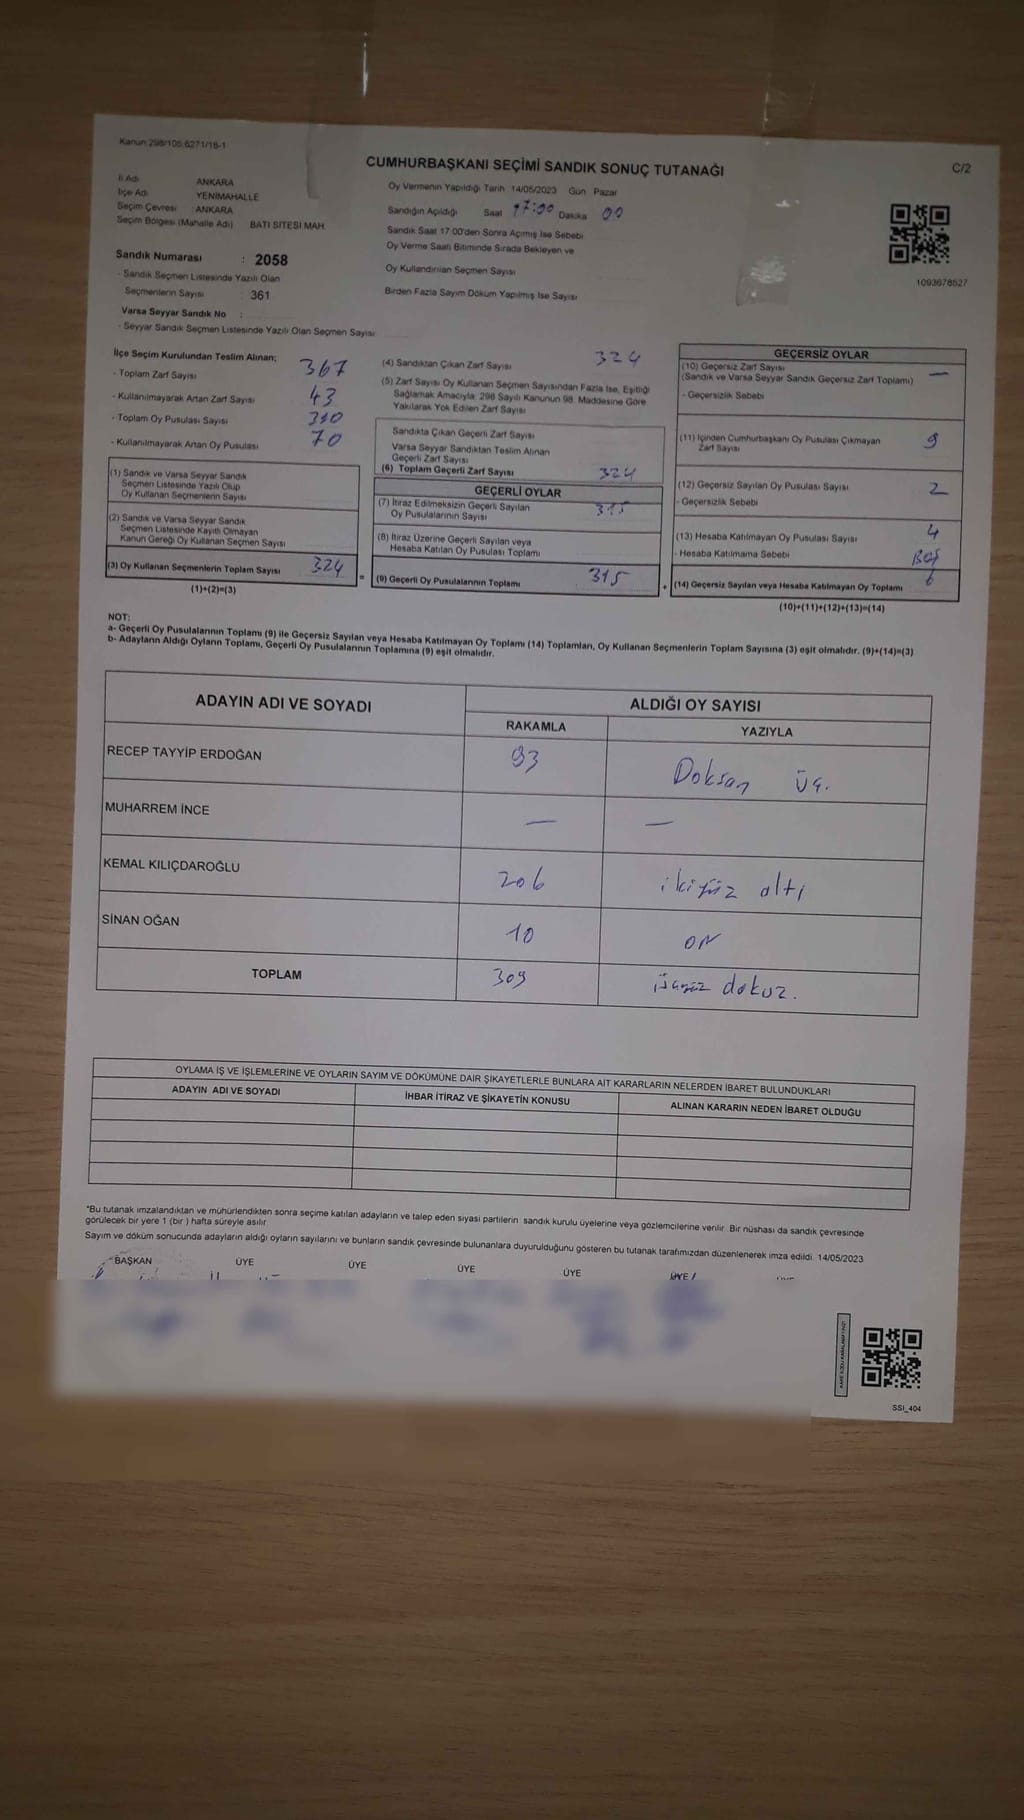 Kanun:298/105;6271/18-1
CUMHURBAŞKANI SEÇİMİ SANDIK SONUÇ TUTANAĞI
C/2
İl Adı ANKARA
İlçe Adı YENİMAHALLE
Seçim Çevresi : ANKARA
Seçim Bölgesi (Mahalle Adı) BATI SİTESİ MAH
Sandık Numarası : 2058
- Sandık Seçmen Listesinde Yazılı Olan
Seçmenlerin Sayısı 361
Varsa Seyyar Sandık No :
- Seyyar Sandık Seçmen Listesinde Yazılı Olan Seçmen Sayısı
Oy Vermenin Yapıldığı Tarih 14/05/2023 Gün Pazar
Sandığın Açıldığı Saat 17:00 Dakika 00
Sandık Saat 17:00'den Sonra Açımış İse Sebebi
Oy Verme Saati Bitiminde Sırada Bekleyen ve
Oy Kullandırılan Seçmen Sayısı
Birden Fazla Sayım Döküm Yapılmış İse Sayısı
1093676527
İlçe Seçim Kurulundan Teslim Alınan;
- Toplam Zarf Sayısı 367
- Kullanılmayarak Artan Zarf Sayısı 43
- Toplam Oy Pusulası Sayısı
- Kullanılmayarak Artan Oy Pusulası 70
(1) Sandık ve Varsa Seyyar Sandık
Seçmen Listesinde Yazılı Olup
Oy Kullanan Seçmenlerin Sayısı
(2) Sandık ve Varsa Seyyar Sandık
Seçmen Listesinde Kayıtlı Olmayan
Kanun Gereği Oy Kullanan Seçmen Sayısı
(3) Oy Kullanan Seçmenlerin Toplam Sayısı 324
(1)+(2)=(3)
(4) Sandıktan Çıkan Zarf Sayısı 324
(5) Zarf Sayısı Oy Kullanan Seçmen Sayısından Fazla İse, Eşitliği
Sağlamak Amacıyla; 298 Sayılı Kanunun 98. Maddesine Göre
Yakılarak Yok Edilen Zarf Sayısı
Sandıkta Çıkan Geçerli Zarf Sayısı
Varsa Seyyar Sandıktan Teslim Alınan
Geçerli Zarf Sayısı
(6) Toplam Geçerli Zarf Sayısı 324
GEÇERLİ OYLAR
(7) İtiraz Edilmeksizin Geçerli Sayılan
Oy Pusulalarının Sayısı 315
(8) İtiraz Üzerine Geçerli Sayılan veya
Hesaba Katılan Oy Pusulası Toplamı
= (9) Geçerli Oy Pusulalarının Toplamı 315
GEÇERSİZ OYLAR
(10) Geçersiz Zarf Sayısı —
(Sandık ve Varsa Seyyar Sandık Geçersiz Zarf Toplamı)
- Geçersizlik Sebebi
(11) İçinden Cumhurbaşkanı Oy Pusulası Çıkmayan
Zarf Sayısı 9
(12) Geçersiz Sayılan Oy Pusulası Sayısı 2
- Geçersizlik Sebebi
(13) Hesaba Katılmayan Oy Pusulası Sayısı 4
- Hesaba Katılmama Sebebi Boş
+ (14) Geçersiz Sayılan veya Hesaba Katılmayan Oy Toplamı 6
(10)+(11)+(12)+(13)=(14)
NOT:
a- Geçerli Oy Pusulalarının Toplamı (9) ile Geçersiz Sayılan veya Hesaba Katılmayan Oy Toplamı (14) Toplamları, Oy Kullanan Seçmenlerin Toplam Sayısına (3) eşit olmalıdır. (9)+(14)=(3)
b- Adayların Aldığı Oyların Toplamı, Geçerli Oy Pusulalarının Toplamına (9) eşit olmalıdır.
ADAYIN ADI VE SOYADI ALDIĞI OY SAYISI
RAKAMLA YAZIYLA
RECEP TAYYİP ERDOĞAN 93 Doksan üç.
MUHARREM İNCE — —
KEMAL KILIÇDAROĞLU 206 ikiyüz altı
SİNAN OĞAN 10 on
TOPLAM 309 üçyüz dokuz.
OYLAMA İŞ VE İŞLEMLERİNE VE OYLARIN SAYIM VE DÖKÜMÜNE DAİR ŞİKAYETLERLE BUNLARA AİT KARARLARIN NELERDEN İBARET BULUNDUKLARI
ADAYIN ADI VE SOYADI İHBAR İTİRAZ VE ŞİKAYETİN KONUSU ALINAN KARARIN NEDEN İBARET OLDUĞU
*Bu tutanak imzalandıktan ve mühürlendikten sonra seçime katılan adayların ve talep eden siyasi partilerin sandık kurulu üyelerine veya gözlemcilerine verilir. Bir nüshası da sandık çevresinde
görülecek bir yere 1 (bir ) hafta süreyle asılır.
Sayım ve döküm sonucunda adayların aldığı oyların sayılarını ve bunların sandık çevresinde bulunanlara duyurulduğunu gösteren bu tutanak tarafımızdan düzenlenerek imza edildi. 14/05/2023
BAŞKAN ÜYE ÜYE ÜYE ÜYE ÜYE
SSI_404